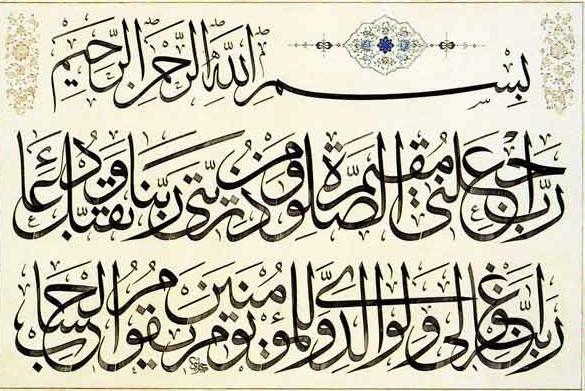 بِسْمِ اللّٰهِ الرَّحْمٰنِ الرَّحِيمِ
رَبِّ اجْعَلْنِي مُقِيمَ الصَّلٰوةِ وَمِنْ ذُرِّيَّتِي رَبَّنَا وَتَقَبَّلْ دُعَاءِ
رَبَّنَا اغْفِرْ لِي وَلِوَالِدَيَّ وَلِلْمُؤْمِنِينَ يَوْمَ يَقُومُ الْحِسَابُ